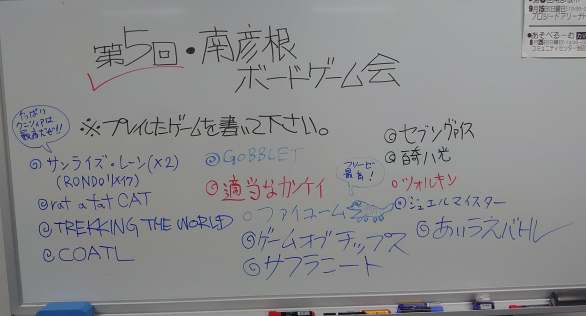 第5回・南彦根
ボードゲーム会
※プレイしたゲームを書いて下さい。
やっぱり
クニツィアは
最高だぜ!!
◎サンライズ・レーン(×2)
(RONDOリメイク)
◎rat a tat CAT
◎TREKKING THE WORLD
◎COATL
◎GOBBLET
◎適当なカンケイ
フリーゼ
最高!
○ファイユーム
◎ゲームオブチップス
◎サフラニート
◎セブンヴァイス
◎百奇八光
○ツォルキン
◎ジュエルマイスター
◎あいうえバトル
9月15日(日曜日)
プロシードアリーナ
●あそべるーむ
コミュニティセンター